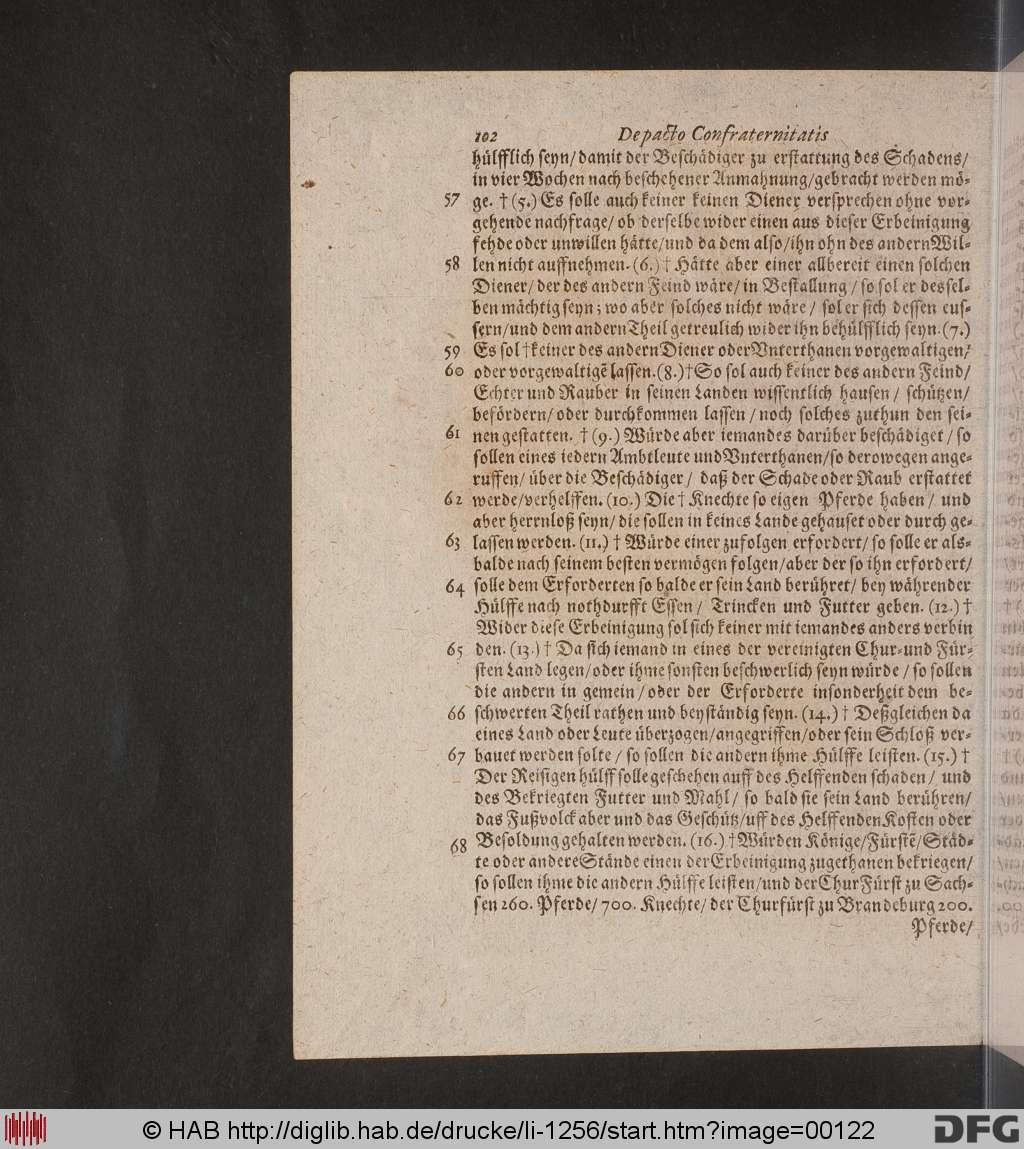 102 De pacto Confraternitatis
hülfflich seyn/ damit der Beschädiger zu erstattung des Schadens/
in vier Wochen nach beschehener Anmahnung/gebracht werden mö-
57 ge. † (5.) Es solle auch keiner keinen Diener versprechen ohne vor-
gehende nachfrage/ ob derselbe wider einen aus dieser Erbeinigung
fehde oder unwillen hätte/und da dem also/ihn ohn des andern Wil-
58 len nicht auffnehmen. (6.) † Hätte aber einer allbereit einen solchen
Diener/ der des andern Feind wäre/ in Bestallung / so sol er dessel-
ben mächtig seyn; wo aber solches nicht wäre / sol er sich dessen eus-
sern/und dem andern Theil getreulich wider ihn behülfflich seyn. (7.)
59 Es sol † keiner des andern Diener oder Vnterthanen vorgewaltigen/
60 oder vorgewaltigẽ lassen. (8.) † So sol auch keiner des andern Feind/
Echter und Rauber in seinen Landen wissentlich hausen / schützen/
befördern/ oder durchkommen lassen / noch solches zuthun den sei-
61 nen gestatten. † (9.) Würde aber iemandes darüber beschädiget / so
sollen eines iedern Ambtleute und Vnterthanen/so derowegen ange-
ruffen/ über die Beschädiger / daß der Schade oder Raub erstattet
62 werde/verhelffen. (10.) Die † Knechte so eigen Pferde haben / und
aber herrnloß seyn/ die sollen in keines Lande gehauset oder durch ge-
63 lassen werden. (11.) † Würde einer zufolgen erfordert/ so solle er als-
balde nach seinem besten vermögen folgen/aber der so ihn erfordert/
64 solle dem Erforderten so balde er sein Land berühret/ bey währender
Hülffe nach nothdurfft Essen / Trincken und Futter geben. (12.) †
Wider diese Erbeinigung sol sich keiner mit iemandes anders verbin
65 den. (13.) † Da sich iemand in eines der vereinigten Chur- und Für-
sten Land legen/oder ihme sonsten beschwerlich seyn würde / so sollen
die andern in gemein / oder der Erforderte insonderheit dem be-
66 schwerten Theil rathen und beyständig seyn. (14.) † Deßgleichen da
eines Land oder Leute überzogen/angegriffen/oder sein Schloß ver-
67 bauet werden solte / so sollen die andern ihme Hülffe leisten. (15.) †
Der Reisigen hülff solle geschehen auff des Helffenden schaden / und
des Bekriegten Futter und Mahl / so bald sie sein Land berühren/
das Fußvolck aber und das Geschütz/uff des Helffenden Kosten oder
68 Besoldung gehalten werden. (16.) † Würden Könige/Fürstẽ/Städ-
te oder andere Stände einen der Erbeinigung zugethanen bekriegen/
so sollen ihme die andern Hülffe leisten/und der ChurFürst zu Sach-
sen 260. Pferde/ 700. Knechte/ der Churfürst zu Brandeburg 200.
Pferde/
© HAB http://diglib.hab.de/drucke/li-1256/start.htm?image=00122
DFG